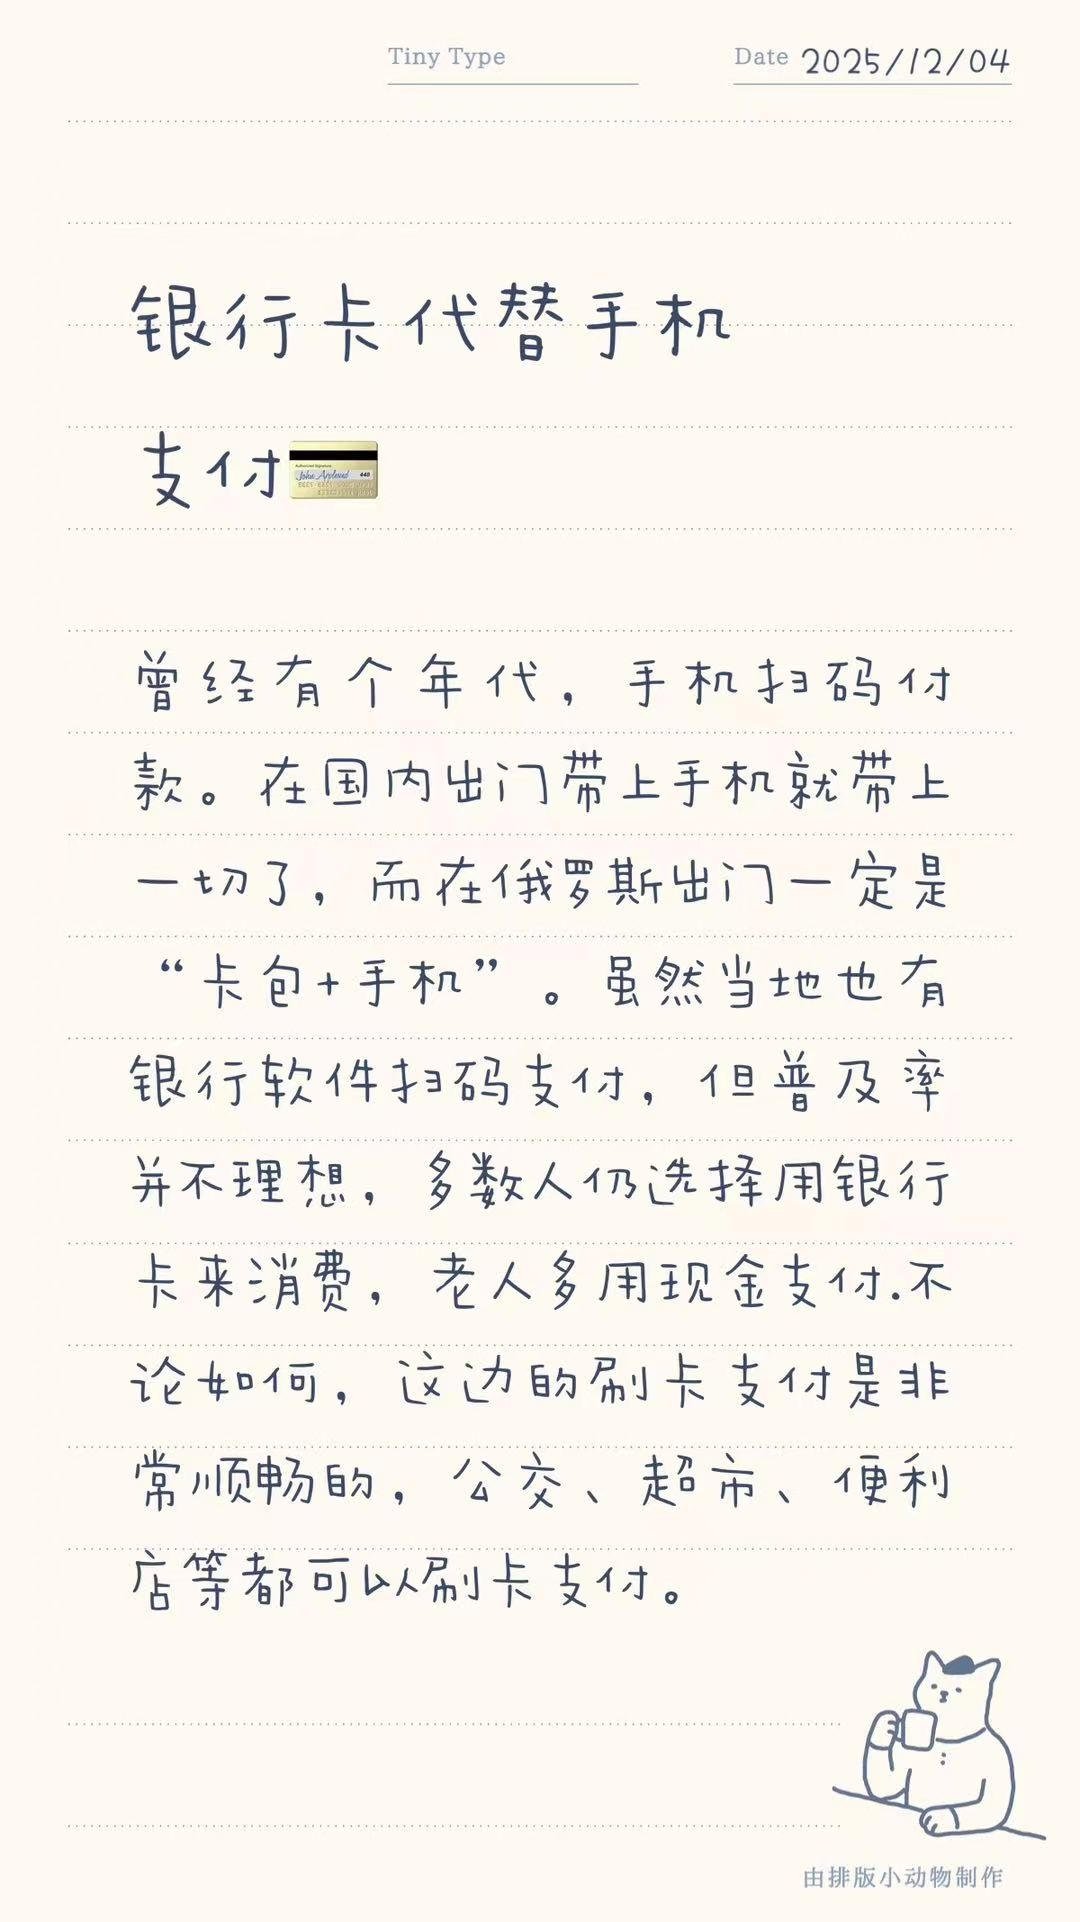 Tiny Type
Date 2025/12/04
银行卡代替手机
支付
曾经有个年代，手机扫码付
款。在国内出门带上手机就带上
一切了，而在俄罗斯出门一定是
“卡包+手机”。虽然当地也有
银行软件扫码支付，但普及率
并不理想，多数人仍选择用银行
卡来消费，老人多用现金支付.不
论如何，这边的刷卡支付是非
常顺畅的，公交、超市、便利
店等都可以刷卡支付。
由排版小动物制作